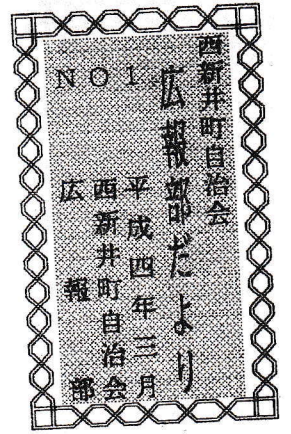 西新井町自治会
広報部だより
NO1.
平成四年三月
西新井町自治会
広報部